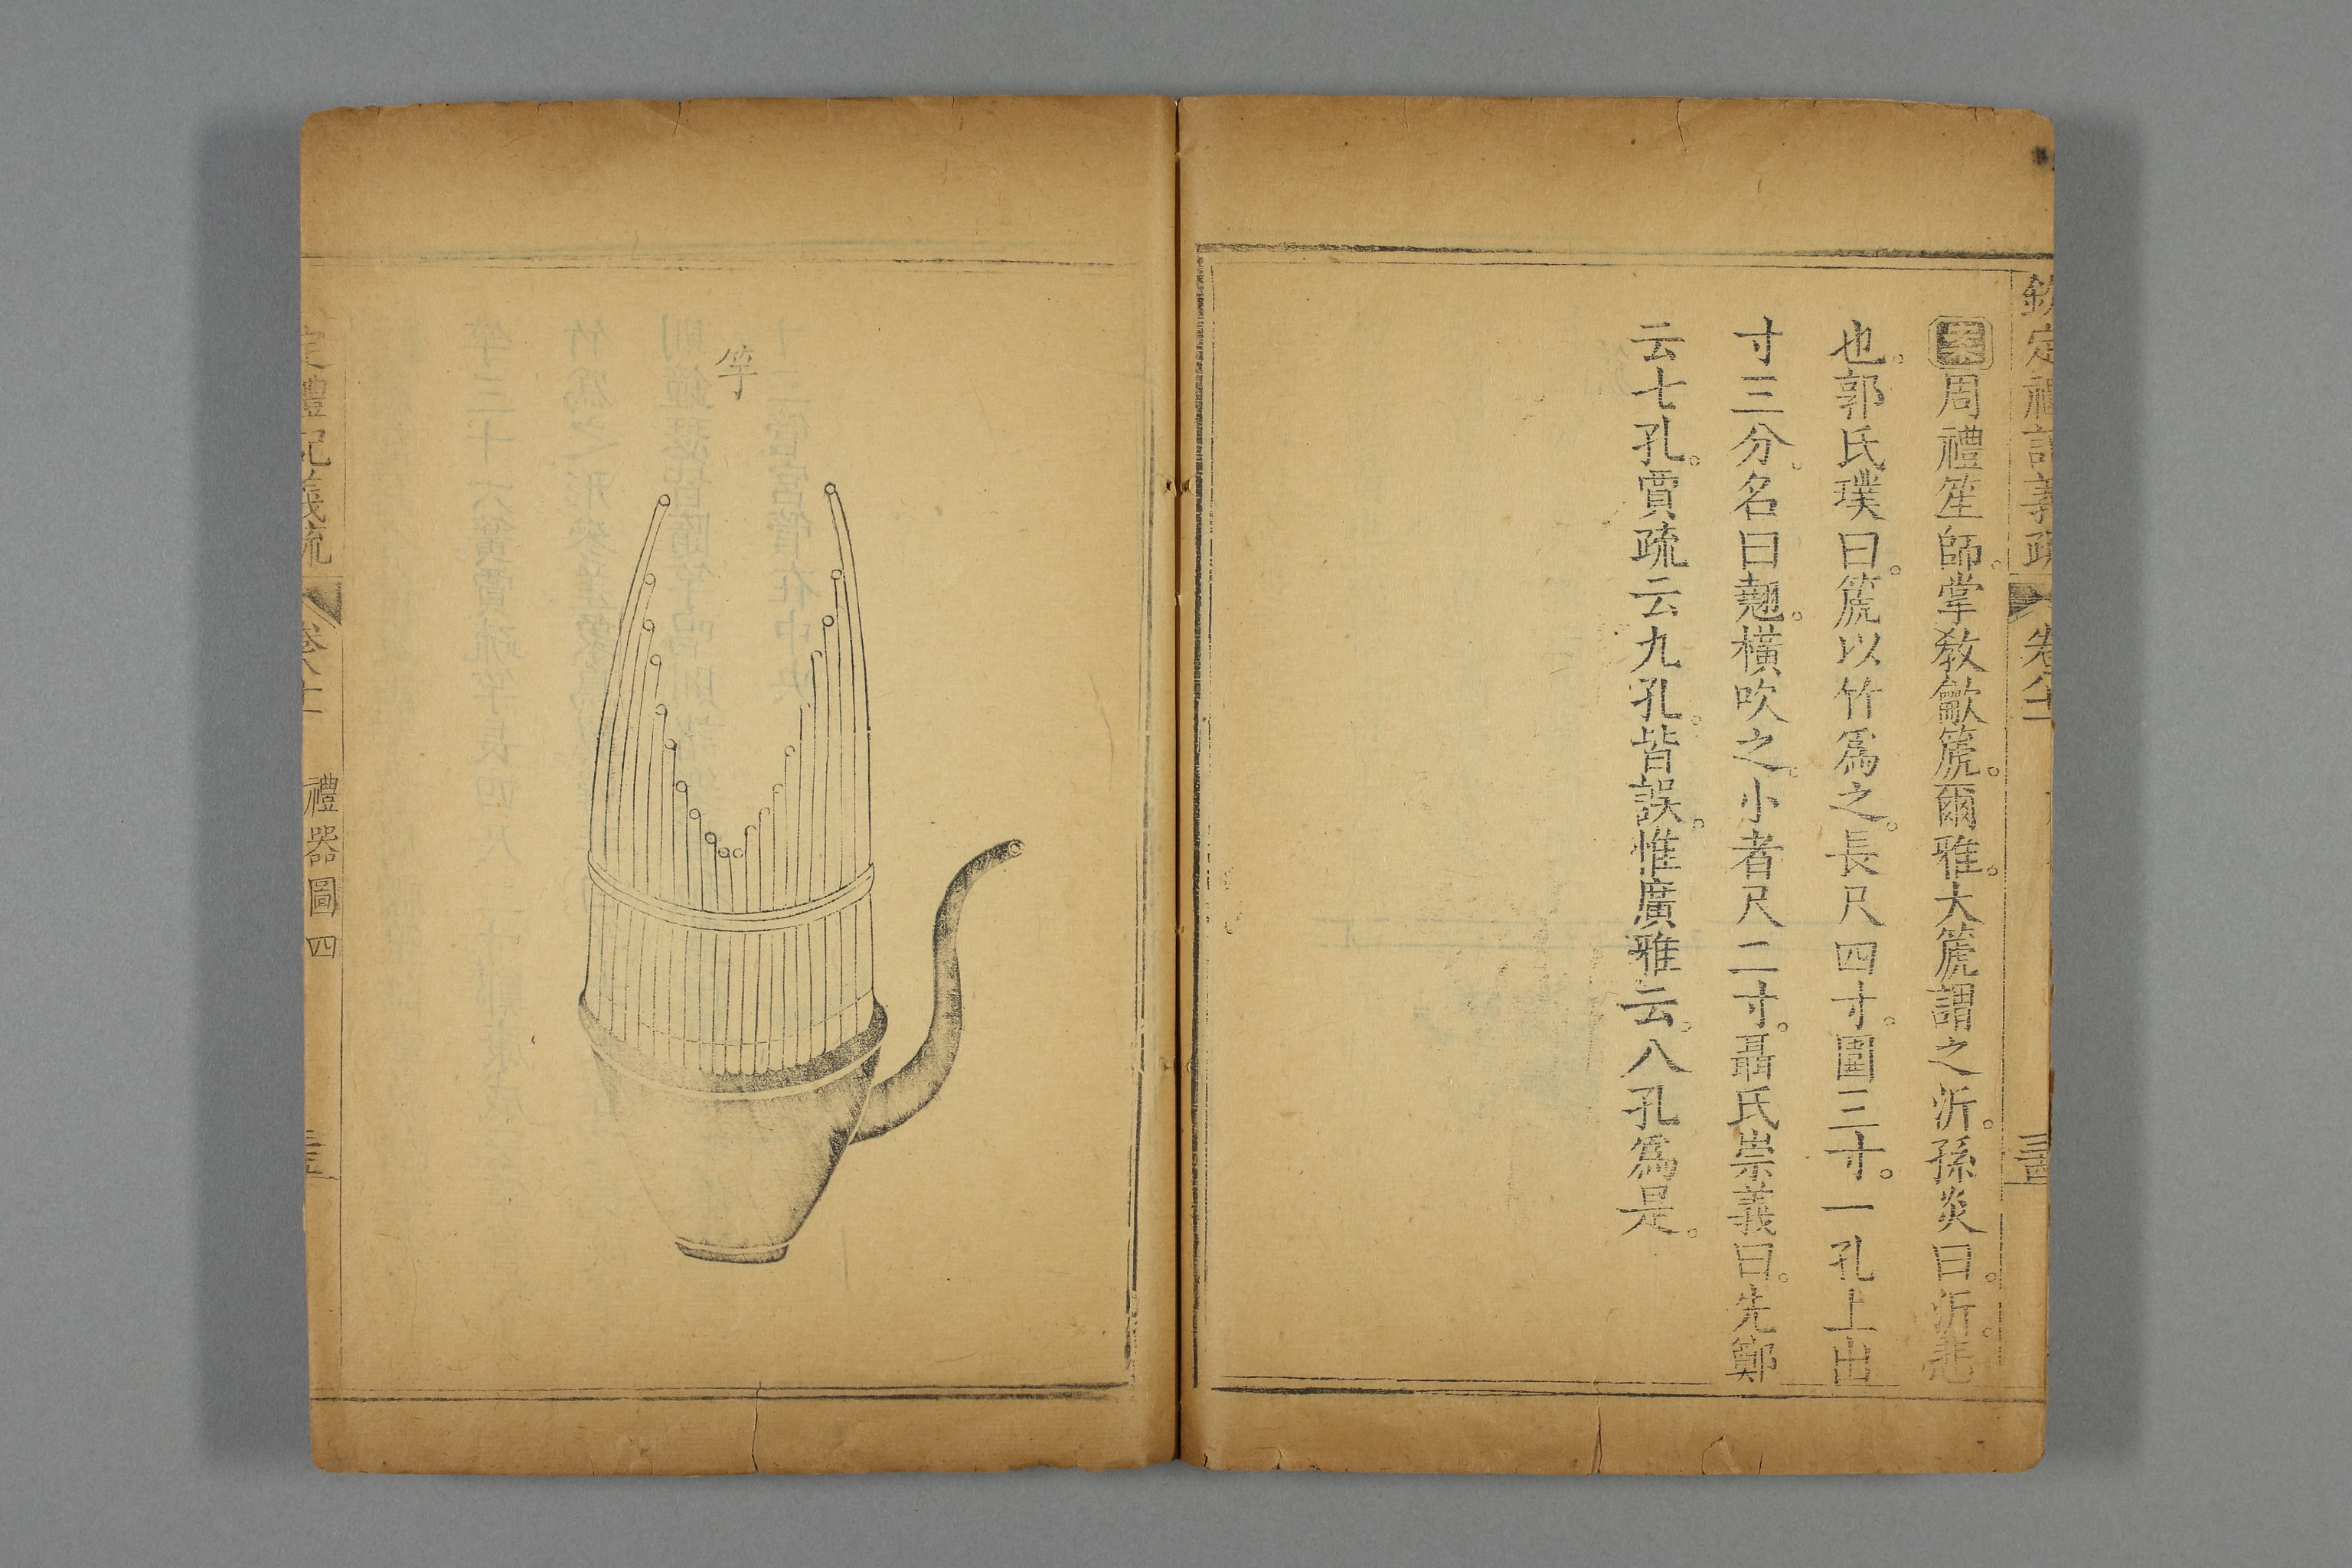 欽定禮記義疏 卷八十一
周禮笙師。掌敎龡篪。爾雅。大篪謂之沂。孫炎曰。沂。悲
也。郭氏璞曰。篪以竹爲之。長尺四寸。圍三寸。一孔上出
寸三分。名曰翹。橫吹之。小者尺二寸。聶氏崇義曰。先鄭
云七孔。賈疏云九孔。皆誤。惟廣雅云。八孔爲是。
竽
定禮記義疏 卷八十一 禮器圖四